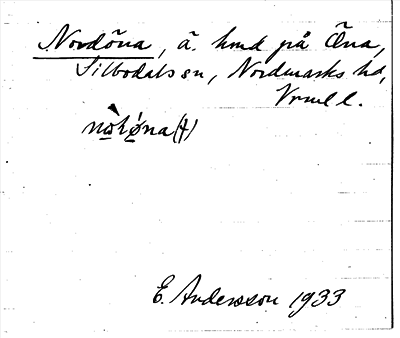 Nordöna, ä. hmd på Öna,
Silbodals sn, Nordmarks hd,
Vrml l.
E. Andersson 1933